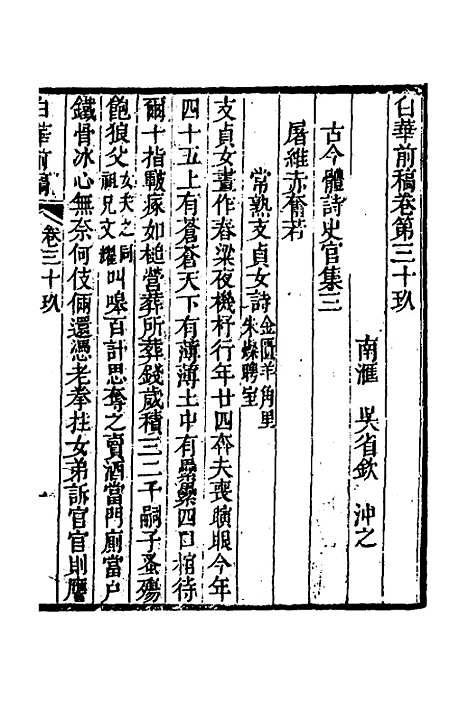 白華前稿卷第三十玖
南滙 吳省欽 沖之
古今體詩史官集三
屠維赤奮若
常熟支貞女詩金匱羊角里朱燦聘室
支貞女晝作舂梁夜機杼行年廿四夲夫喪瞚眼今年
四十五上有蒼蒼天下有薄薄土中有纍纍四口棺待
爾十指皸瘃如槌營葬所葬錢歲積三二千嗣子蚤殤
飽狼父女夫之同祖兄文燿叫嘷百計思奪之賣酒當門廁當户
鐵骨冰心無奈何伎倆還憑老拳拄女弟訴官官則應
白華前稿 卷三十玖 一